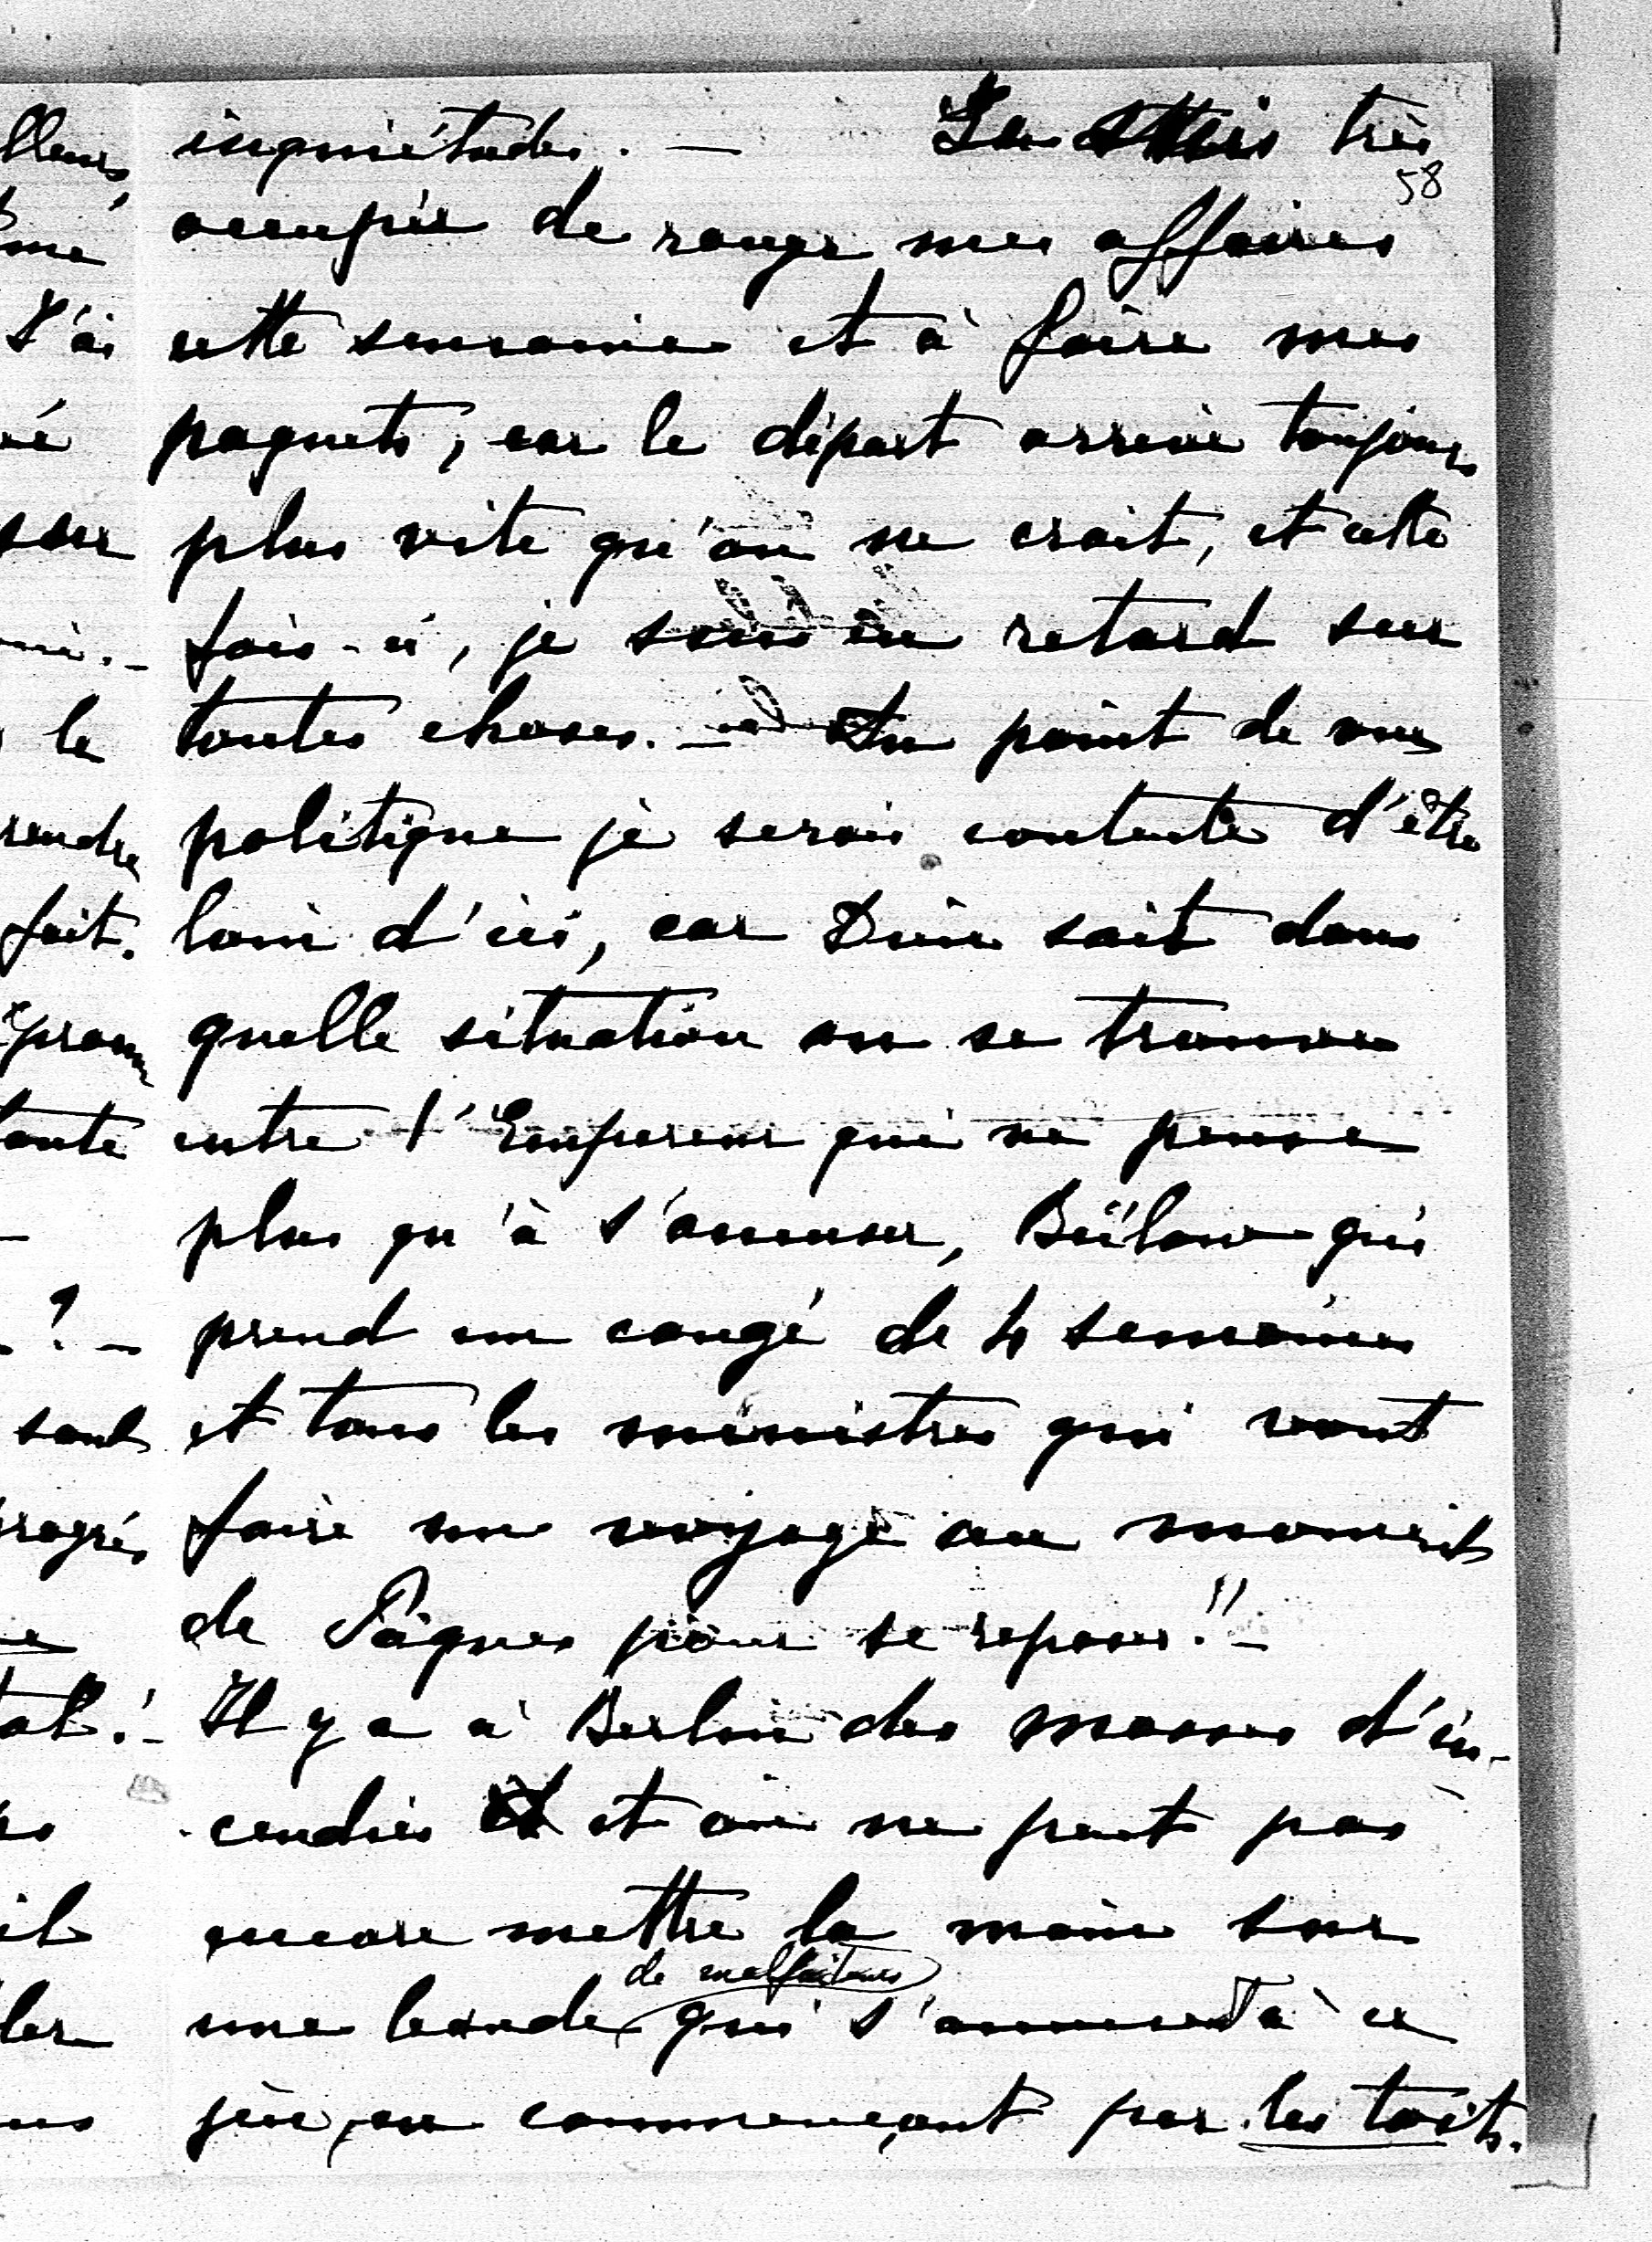 inquiétudes. — Je suis très
58
occupée de ranger mes affaires
cette semaine et à faire mes
paquets, car le départ arrive toujours
plus vite qu'on ne croit, et cette
fois-ci, je suis en retard sur
toutes choses. — Au point de vue
politique je serais contente d'être
loin d'ici, car Dieu sait dans
quelle situation on se trouve
entre l'Empereur qui ne pense
plus qu'à s'amuser, Bülow qui
prend un congé de 4 semaines
et tous les ministres qui vont
faire un voyage au moment
de Pâques pour se reposer!! —
Il y a à Berlin des masses d'in-
cendies et on ne peut pas
encore mettre la main sur
de malfaiteurs
une bande qui s'amuse à ce
jeu, en commençant par les toits.